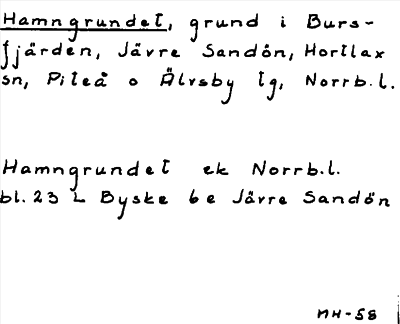 Hamngrundet, grund i Burs-
fjärden, Jävre Sandön, Hortlax
sn, Piteå o Älvsby tg, Norrb.l.
Hamngrundet ek Norrb.l.
bl. 23 L Byske be Jävre Sandön
MH-58